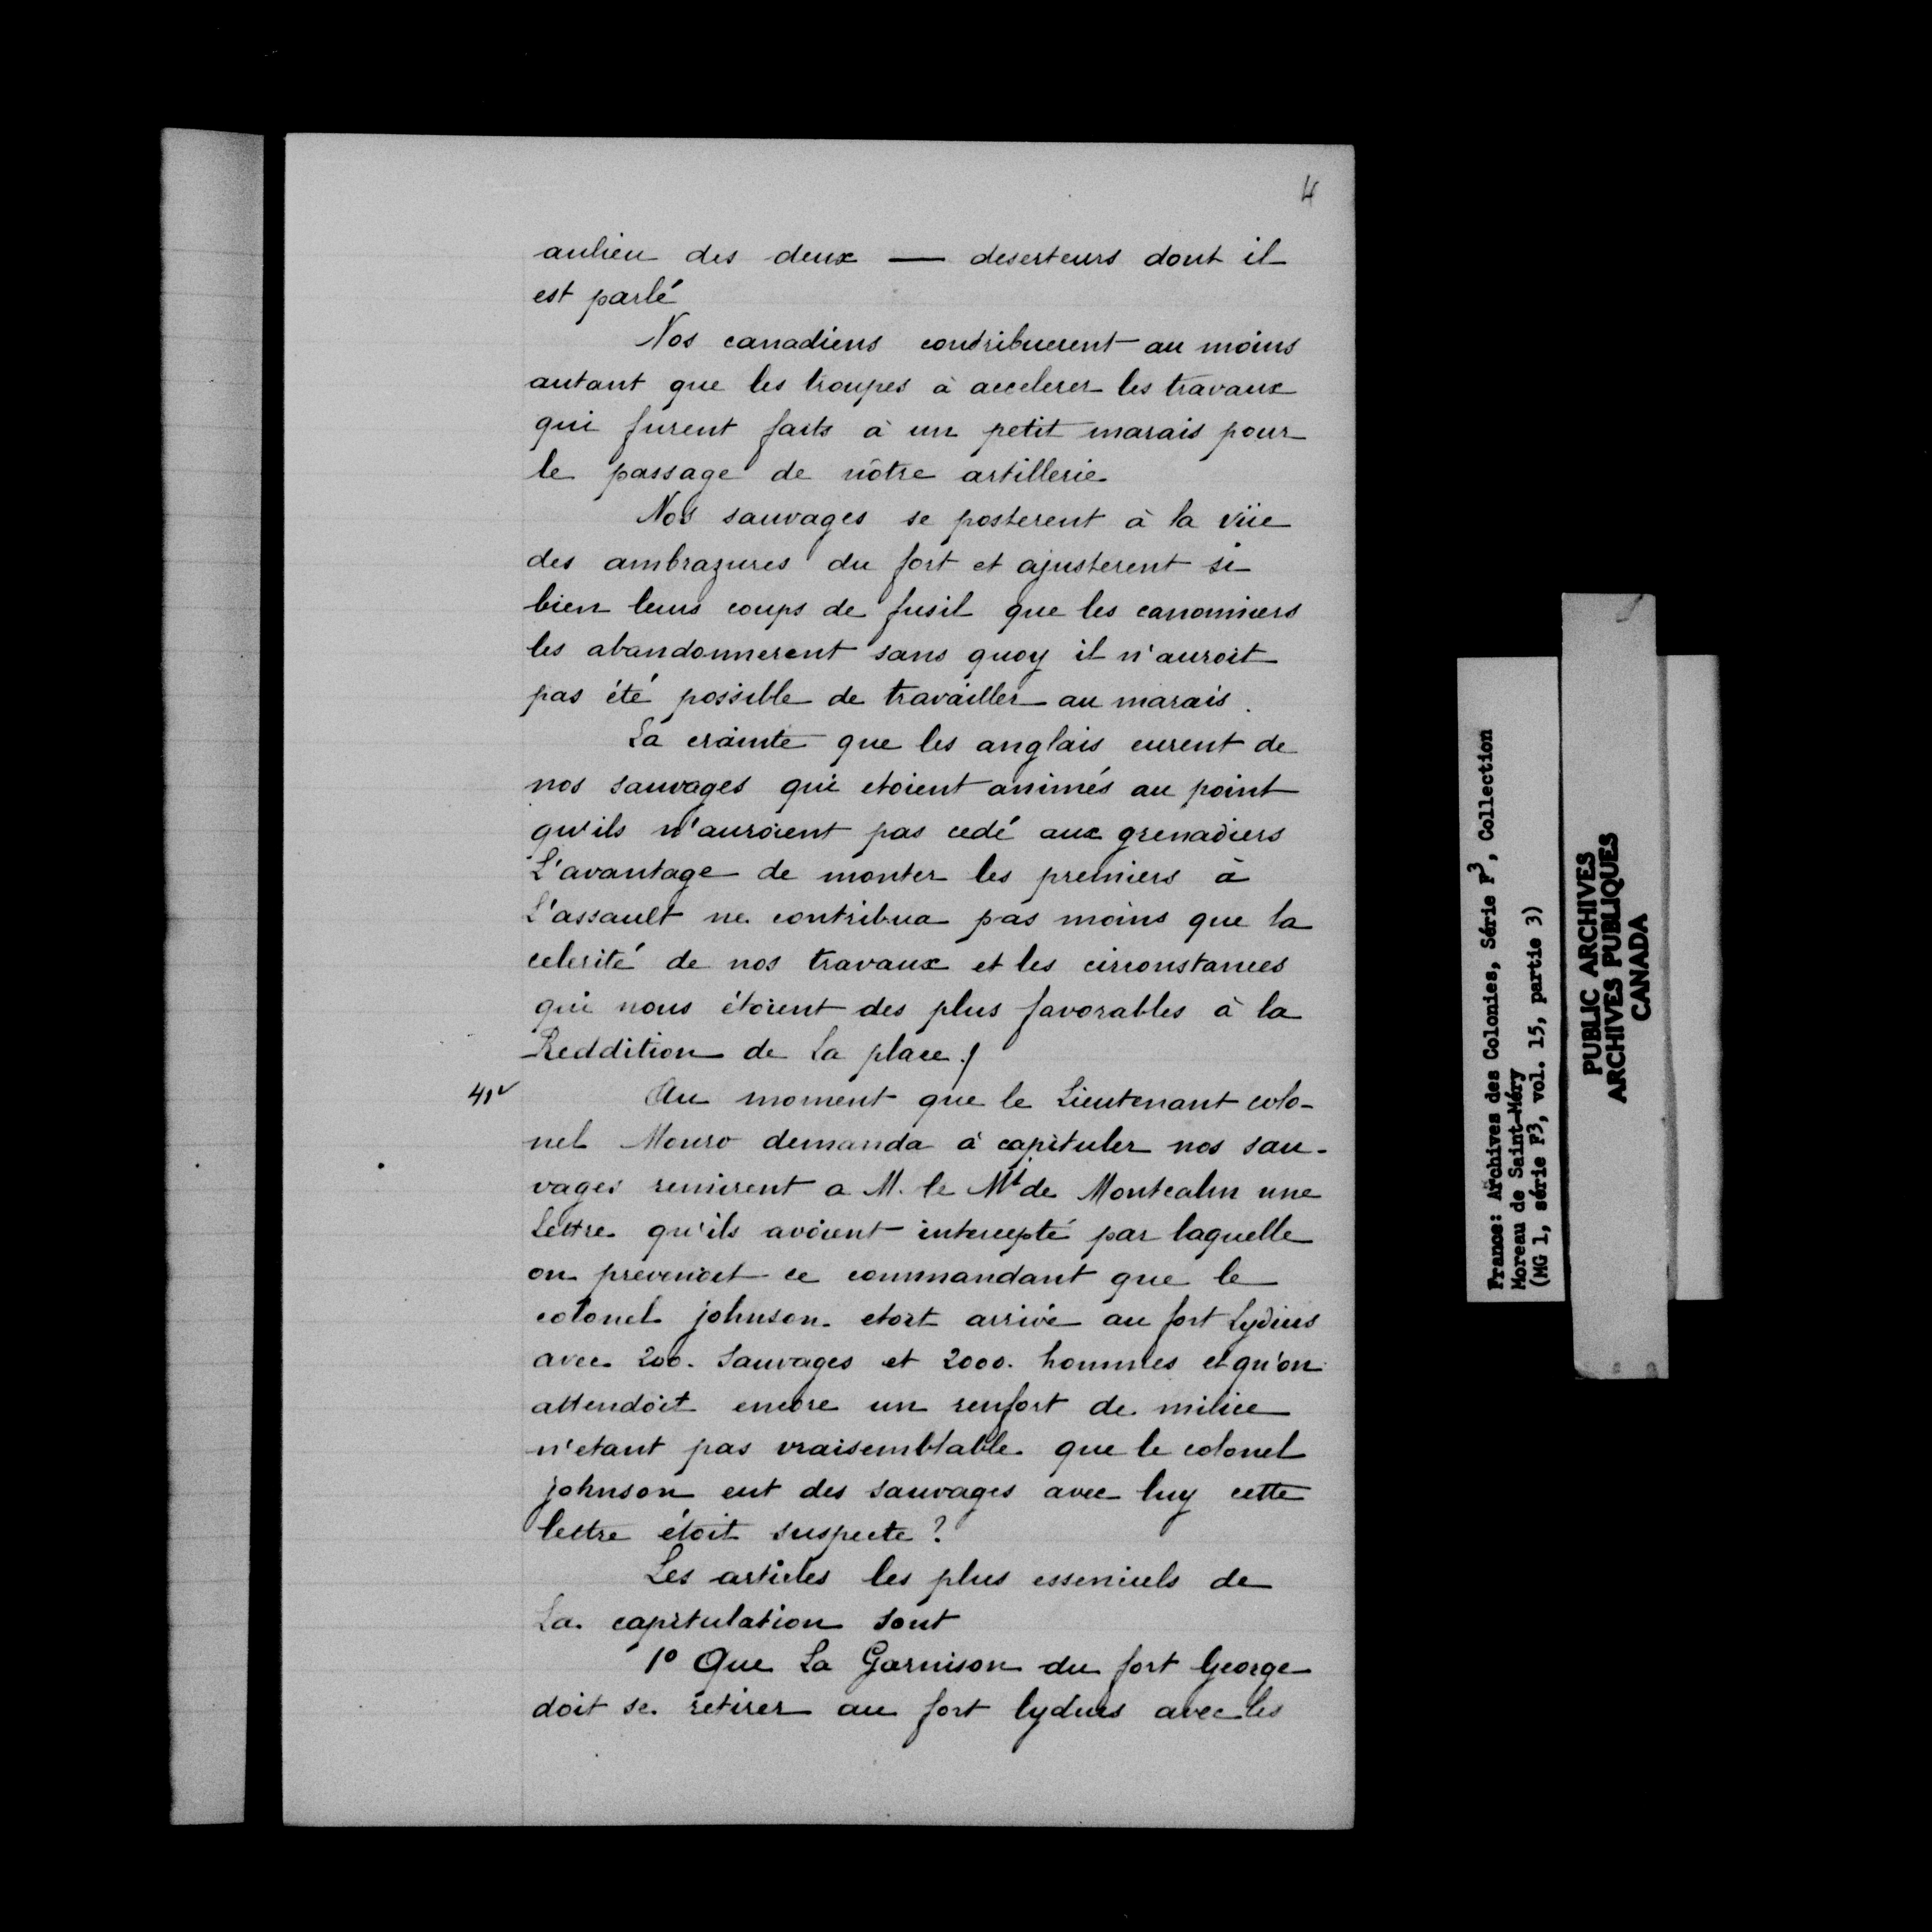 4
aulieu des deux — deserteurs dont il
est parlé
Nos canadiens contribuerent au moins
autant que les troupes à accelerer les travaux
qui furent faits à un petit marais pour
le passage de nôtre artillerie
Nos sauvages se posterent à la vüe
des ambrazures du fort et ajusterent si
bien leurs coups de fusil que les canonniers
les abandonnerent sans quoy il n'auroit
pas été possible de travailler au marais.
La crainte que les anglais eurent de
nos sauvages qui etoient animés au point
qu'ils n'auroient pas cedé aux grenadiers
L'avantage de monter les premiers à
L'assault ne contribua pas moins que la
celerité de nos travaux et les circonstances
qui nous étoient des plus favorables à la
Reddition de La place./
41v
Au moment que le Lieutenant colo-
nel Monro demanda à capituler nos sau-
vages remirent a M. le Mis de Montcalm une
Lettre qu'ils avoient intercepté par laquelle
on prevenoit ce commandant que le
colonel johnson etoit arrivé au fort Lydius
avec 200. Sauvages et 2000. hommes et qu'on
attendoit encore un renfort de milice
n'etant pas vraisemblable que le colonel
johnson eut des sauvages avec luy cette
lettre étoit suspecte?
Les articles les plus essenciels de
La capitulation sont
1º Que La Garnison du fort George
doit se retirer au fort lydius avec les
France: Archives des Colonies, Série F3, Collection
Moreau de Saint-Méry
(MG 1, série F3, vol. 15, partie 3)
PUBLIC ARCHIVES
ARCHIVES PUBLIQUES
CANADA